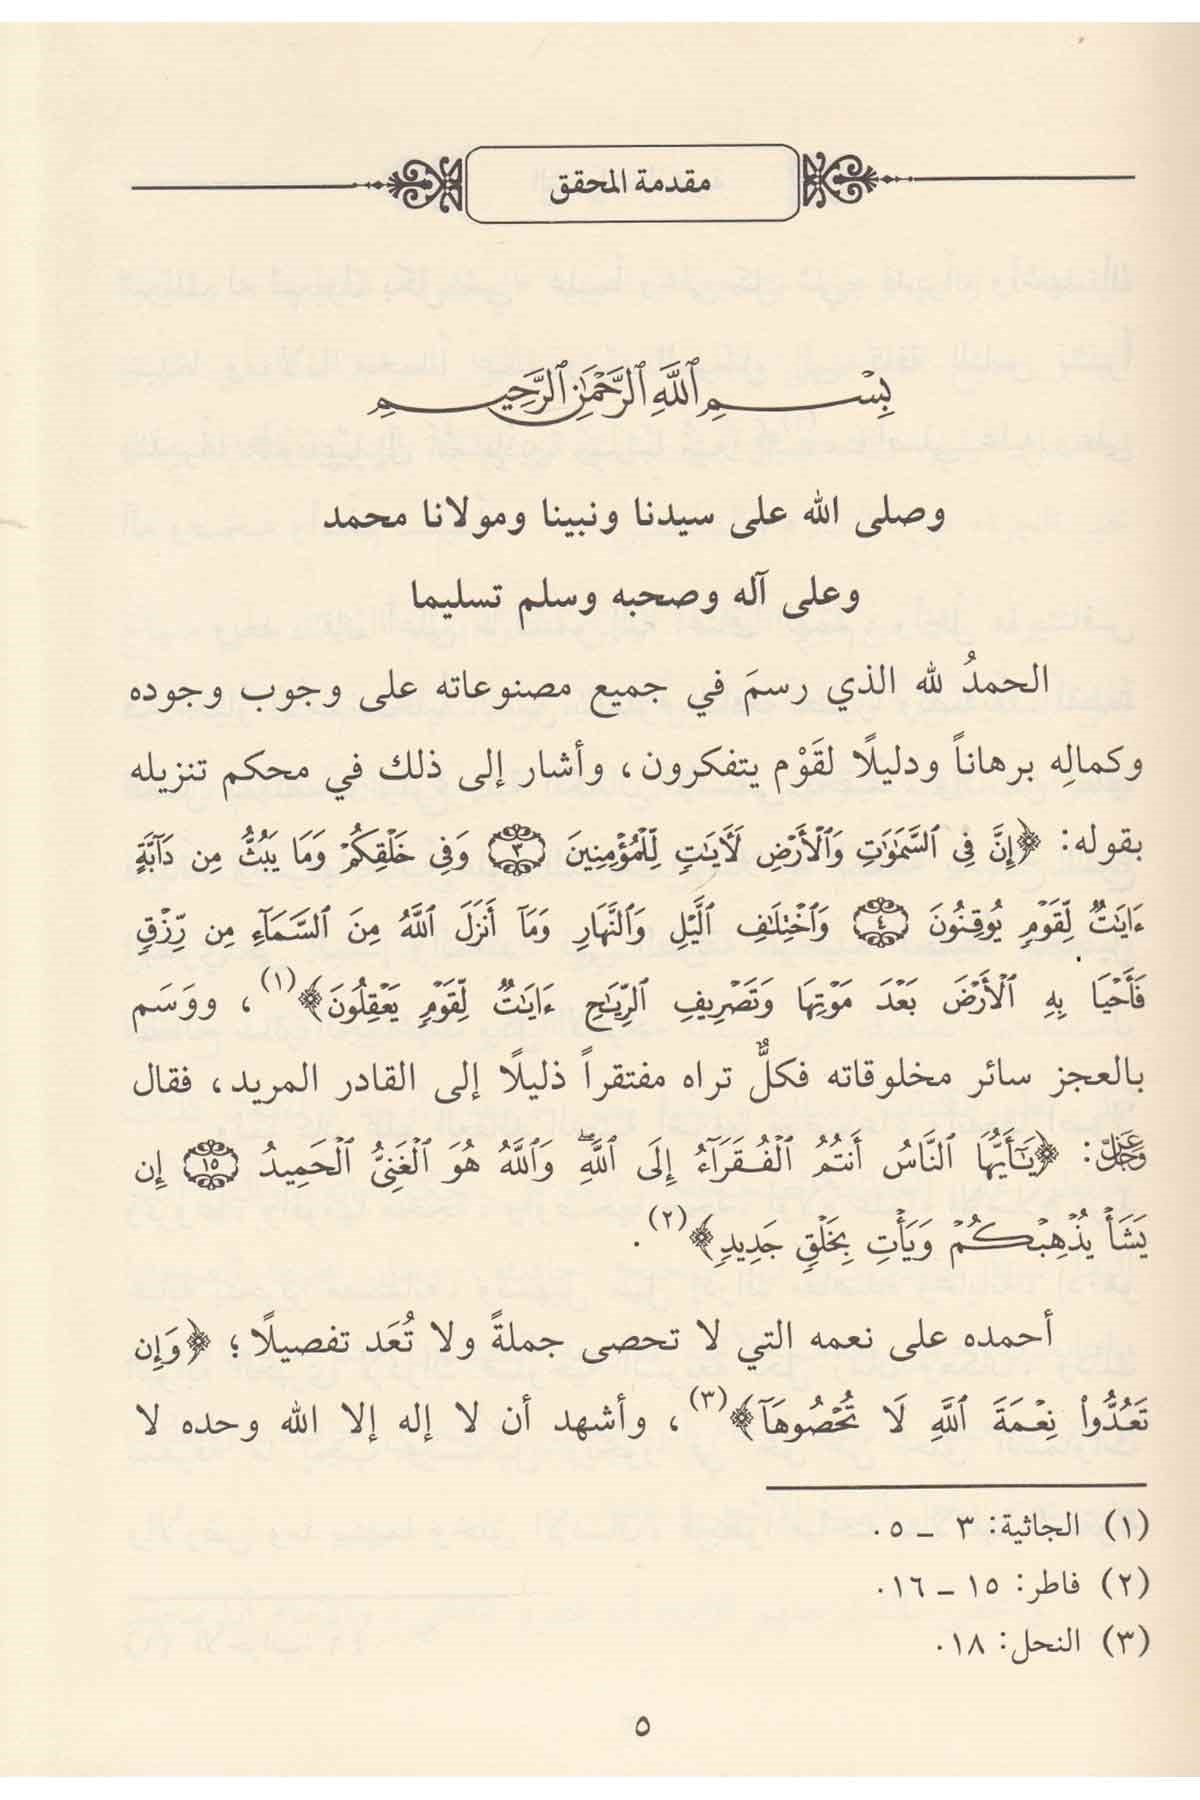 مقدمة المحقق
بِسْمِ ٱللَّهِ ٱلرَّحْمَٰنِ ٱلرَّحِيمِ
وصلى الله على سيدنا ونبينا ومولانا محمد
وعلى آله وصحبه وسلم تسليما
الحمدُ لله الذي رسمَ في جميع مصنوعاته على وجوب وجوده
وكمالِه برهاناً ودليلًا لقَوْم يتفكرون، وأشار إلى ذلك في محكم تنزيله
بقوله: ﴿إِنَّ فِي ٱلسَّمَٰوَٰتِ وَٱلْأَرْضِ لَأَيَٰتٍ لِّلْمُؤْمِنِينَ ٣ وَفِي خَلْقِكُمْ وَمَا يَبُثُّ مِن دَآبَّةٍ
ءَايَٰتٌ لِّقَوْمٍ يُوقِنُونَ ٤ وَٱخْتِلَٰفِ ٱلَّيْلِ وَٱلنَّهَارِ وَمَآ أَنزَلَ ٱللَّهُ مِنَ ٱلسَّمَآءِ مِن رِّزْقٍ
فَأَحْيَا بِهِ ٱلْأَرْضَ بَعْدَ مَوْتِهَا وَتَصْرِيفِ ٱلرِّيَٰحِ ءَايَٰتٌ لِّقَوْمٍ يَعْقِلُونَ﴾(١)، ووَسَم
بالعجز سائر مخلوقاته فكلٌّ تراه مفتقراً ذليلًا إلى القادر المريد، فقال
عَزَّ وَجَلَّ: ﴿يَٰٓأَيُّهَا ٱلنَّاسُ أَنتُمُ ٱلْفُقَرَآءُ إِلَى ٱللَّهِۖ وَٱللَّهُ هُوَ ٱلْغَنِيُّ ٱلْحَمِيدُ ١٥ إِن
يَشَأْ يُذْهِبْكُمْ وَيَأْتِ بِخَلْقٍ جَدِيدٍ﴾(٢).
أحمده على نعمه التي لا تحصى جملةً ولا تُعَد تفصيلًا؛ ﴿وَإِن
تَعُدُّواْ نِعْمَةَ ٱللَّهِ لَا تُحْصُوهَآ﴾(٣)، وأشهد أن لا إله إلا الله وحده لا
(١) الجاثية: ٣ ـ ٥.
(٢) فاطر: ١٥ ـ ١٦.
(٣) النحل: ١٨.
٥